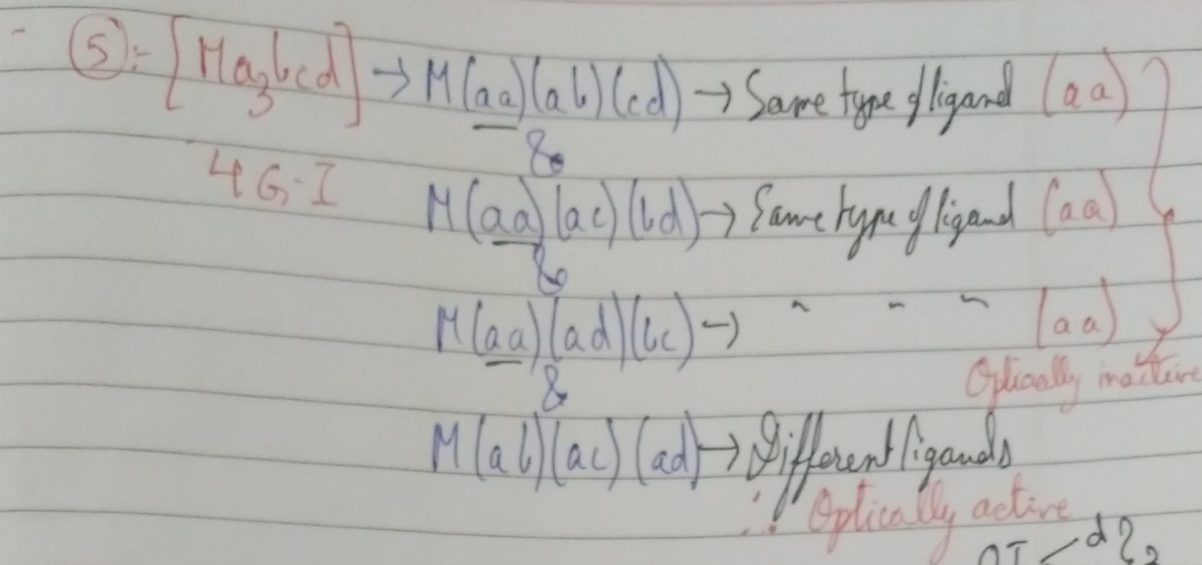 ⑤:- [Ma₃bcd] → M(aa)(ab)(cd) → Same type of ligand (aa)
&
4 G.I M(aa)(ac)(bd) → Same type of ligand (aa)
&
M(aa)(ad)(bc) → " " " (aa)
Optically inactive
&
M(ab)(ac)(ad) → Different ligands
∴ Optically active
OI d